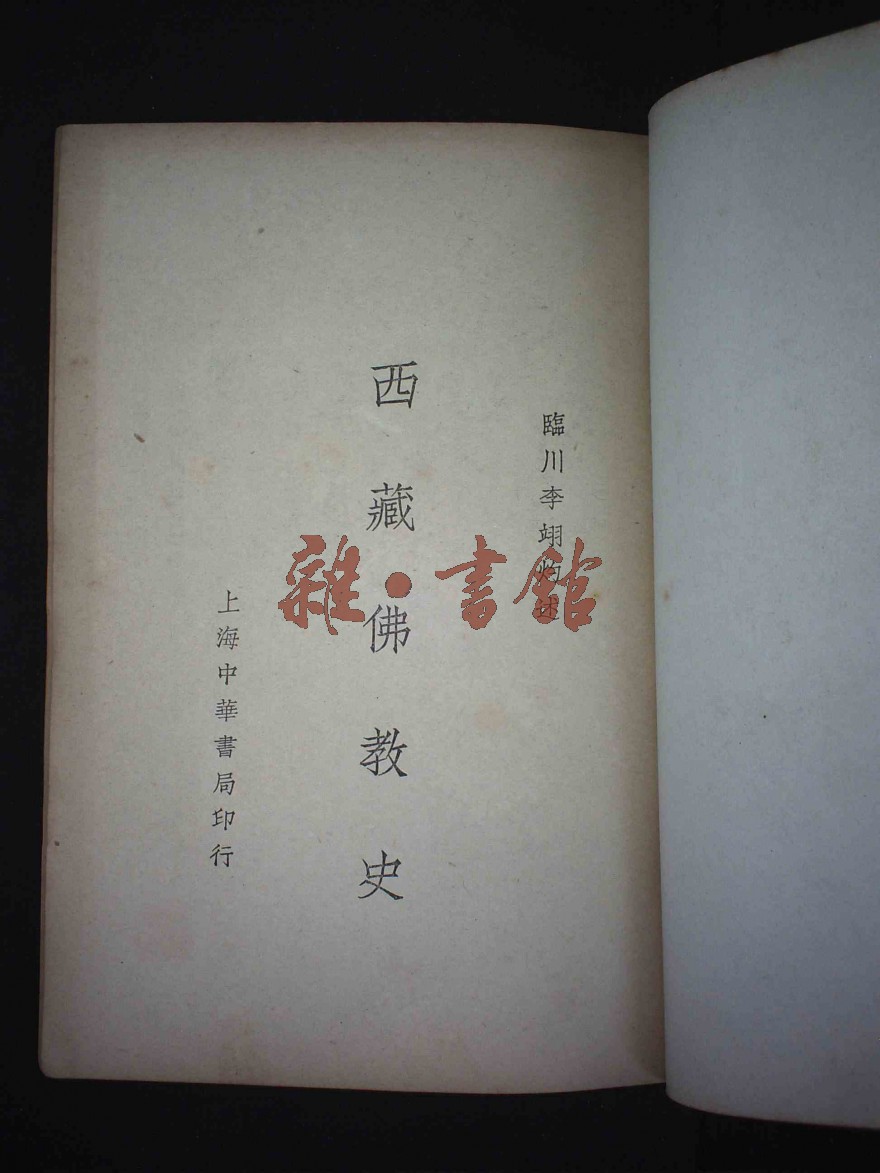 臨川李翊灼述
西藏佛教史
上海中華書局印行
雜·書館